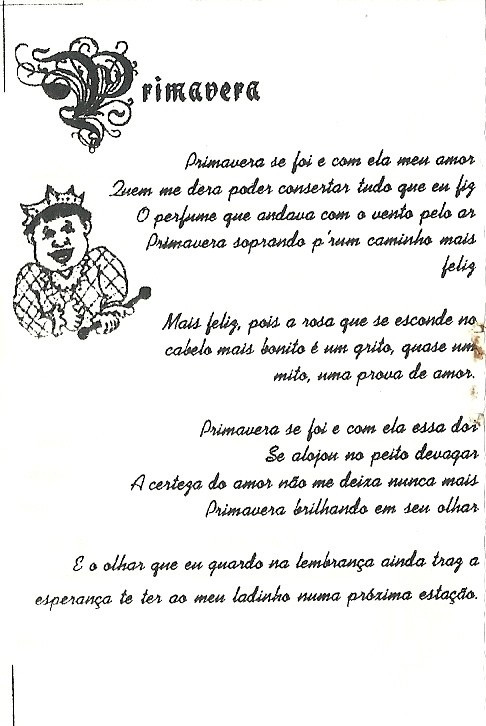 Primavera
Primavera se foi e com ela meu amor
Quem me dera poder consertar tudo que eu fiz
O perfume que andava com o vento pelo ar
Primavera soprando p'rum caminho mais
feliz
Mais feliz, pois a rosa que se esconde no
cabelo mais bonito é um grito, quase um
mito, uma prova de amor.
Primavera se foi e com ela essa dor
Se alojou no peito devagar
A certeza do amor não me deixa nunca mais
Primavera brilhando em seu olhar
E o olhar que eu guardo na lembrança ainda traz a
esperança te ter ao meu ladinho numa próxima estação.